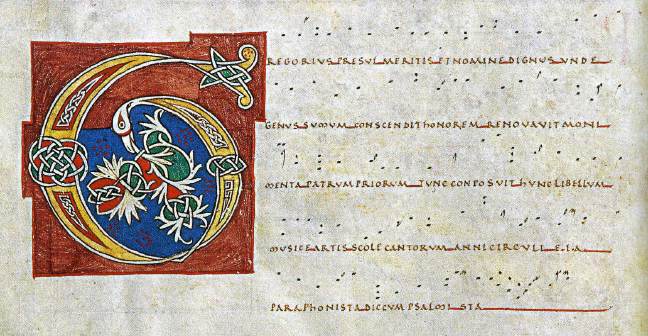 GREGORIUS PRESUL MERITIS ET NOMINE DIGNUS UNDE
GENUS SUMUM CONSCENDIT HONOREM RENOVAVIT MONI
MENTA PATRUM PRIORUM TUNC CONPOSUIT HUNC LIBELLUM
MUSICE ARTIS SCOLE CANTORUM ANNI CIRCULI EIA
PARAPHONISTA DIC CUM PSALMISTA